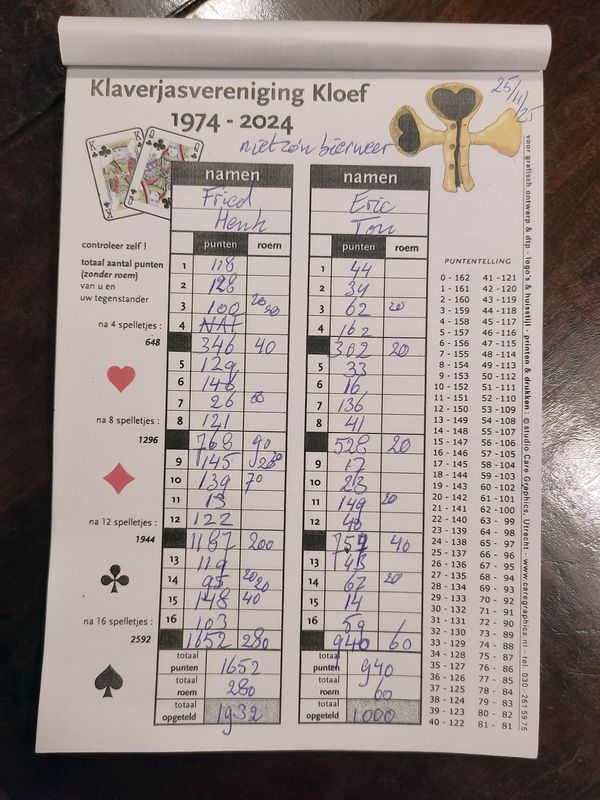 Klaverjasvereniging Kloef
1974 - 2024
25/11/25
niet zo'n bierweer
namen namen
Fried Eric
Henk Ton
punten roem punten roem
controleer zelf !
totaal aantal punten
(zonder roem)
van u en
uw tegenstander
1 118 1 44
2 128 2 34
3 100 20 3 62 20
na 4 spelletjes :
4 NAT 4 162
648
346 40 302 20
5 129 5 33
6 146 6 16
7 26 7 136
na 8 spelletjes :
8 121 8 41
1296
768 90 528 20
9 145 20 9 17
10 139 70 10 23
11 13 11 149 20
na 12 spelletjes :
12 122 12 40
1944
1187 200 757 40
13 119 13 43
14 95 20 20 14 67 20
15 148 40 15 14
na 16 spelletjes :
16 103 16 59
2592
1652 280 940 60
totaal punten 1652 totaal punten 940
totaal roem 280 totaal roem 60
totaal opgeteld 1932 totaal opgeteld 1000
PUNTENTELLING
0 - 162 41 - 121
1 - 161 42 - 120
2 - 160 43 - 119
3 - 159 44 - 118
4 - 158 45 - 117
5 - 157 46 - 116
6 - 156 47 - 115
7 - 155 48 - 114
8 - 154 49 - 113
9 - 153 50 - 112
10 - 152 51 - 111
11 - 151 52 - 110
12 - 150 53 - 109
13 - 149 54 - 108
14 - 148 55 - 107
15 - 147 56 - 106
16 - 146 57 - 105
17 - 145 58 - 104
18 - 144 59 - 103
19 - 143 60 - 102
20 - 142 61 - 101
21 - 141 62 - 100
22 - 140 63 - 99
23 - 139 64 - 98
24 - 138 65 - 97
25 - 137 66 - 96
26 - 136 67 - 95
27 - 135 68 - 94
28 - 134 69 - 93
29 - 133 70 - 92
30 - 132 71 - 91
31 - 131 72 - 90
32 - 130 73 - 89
33 - 129 74 - 88
34 - 128 75 - 87
35 - 127 76 - 86
36 - 126 77 - 85
37 - 125 78 - 84
38 - 124 79 - 83
39 - 123 80 - 82
40 - 122 81 - 81
voor grafisch ontwerp & dtp - logo's & huisstijl - printen & drukken : © studio Care Graphics, Utrecht - www.caregraphics.nl - tel. 030 - 261 59 75